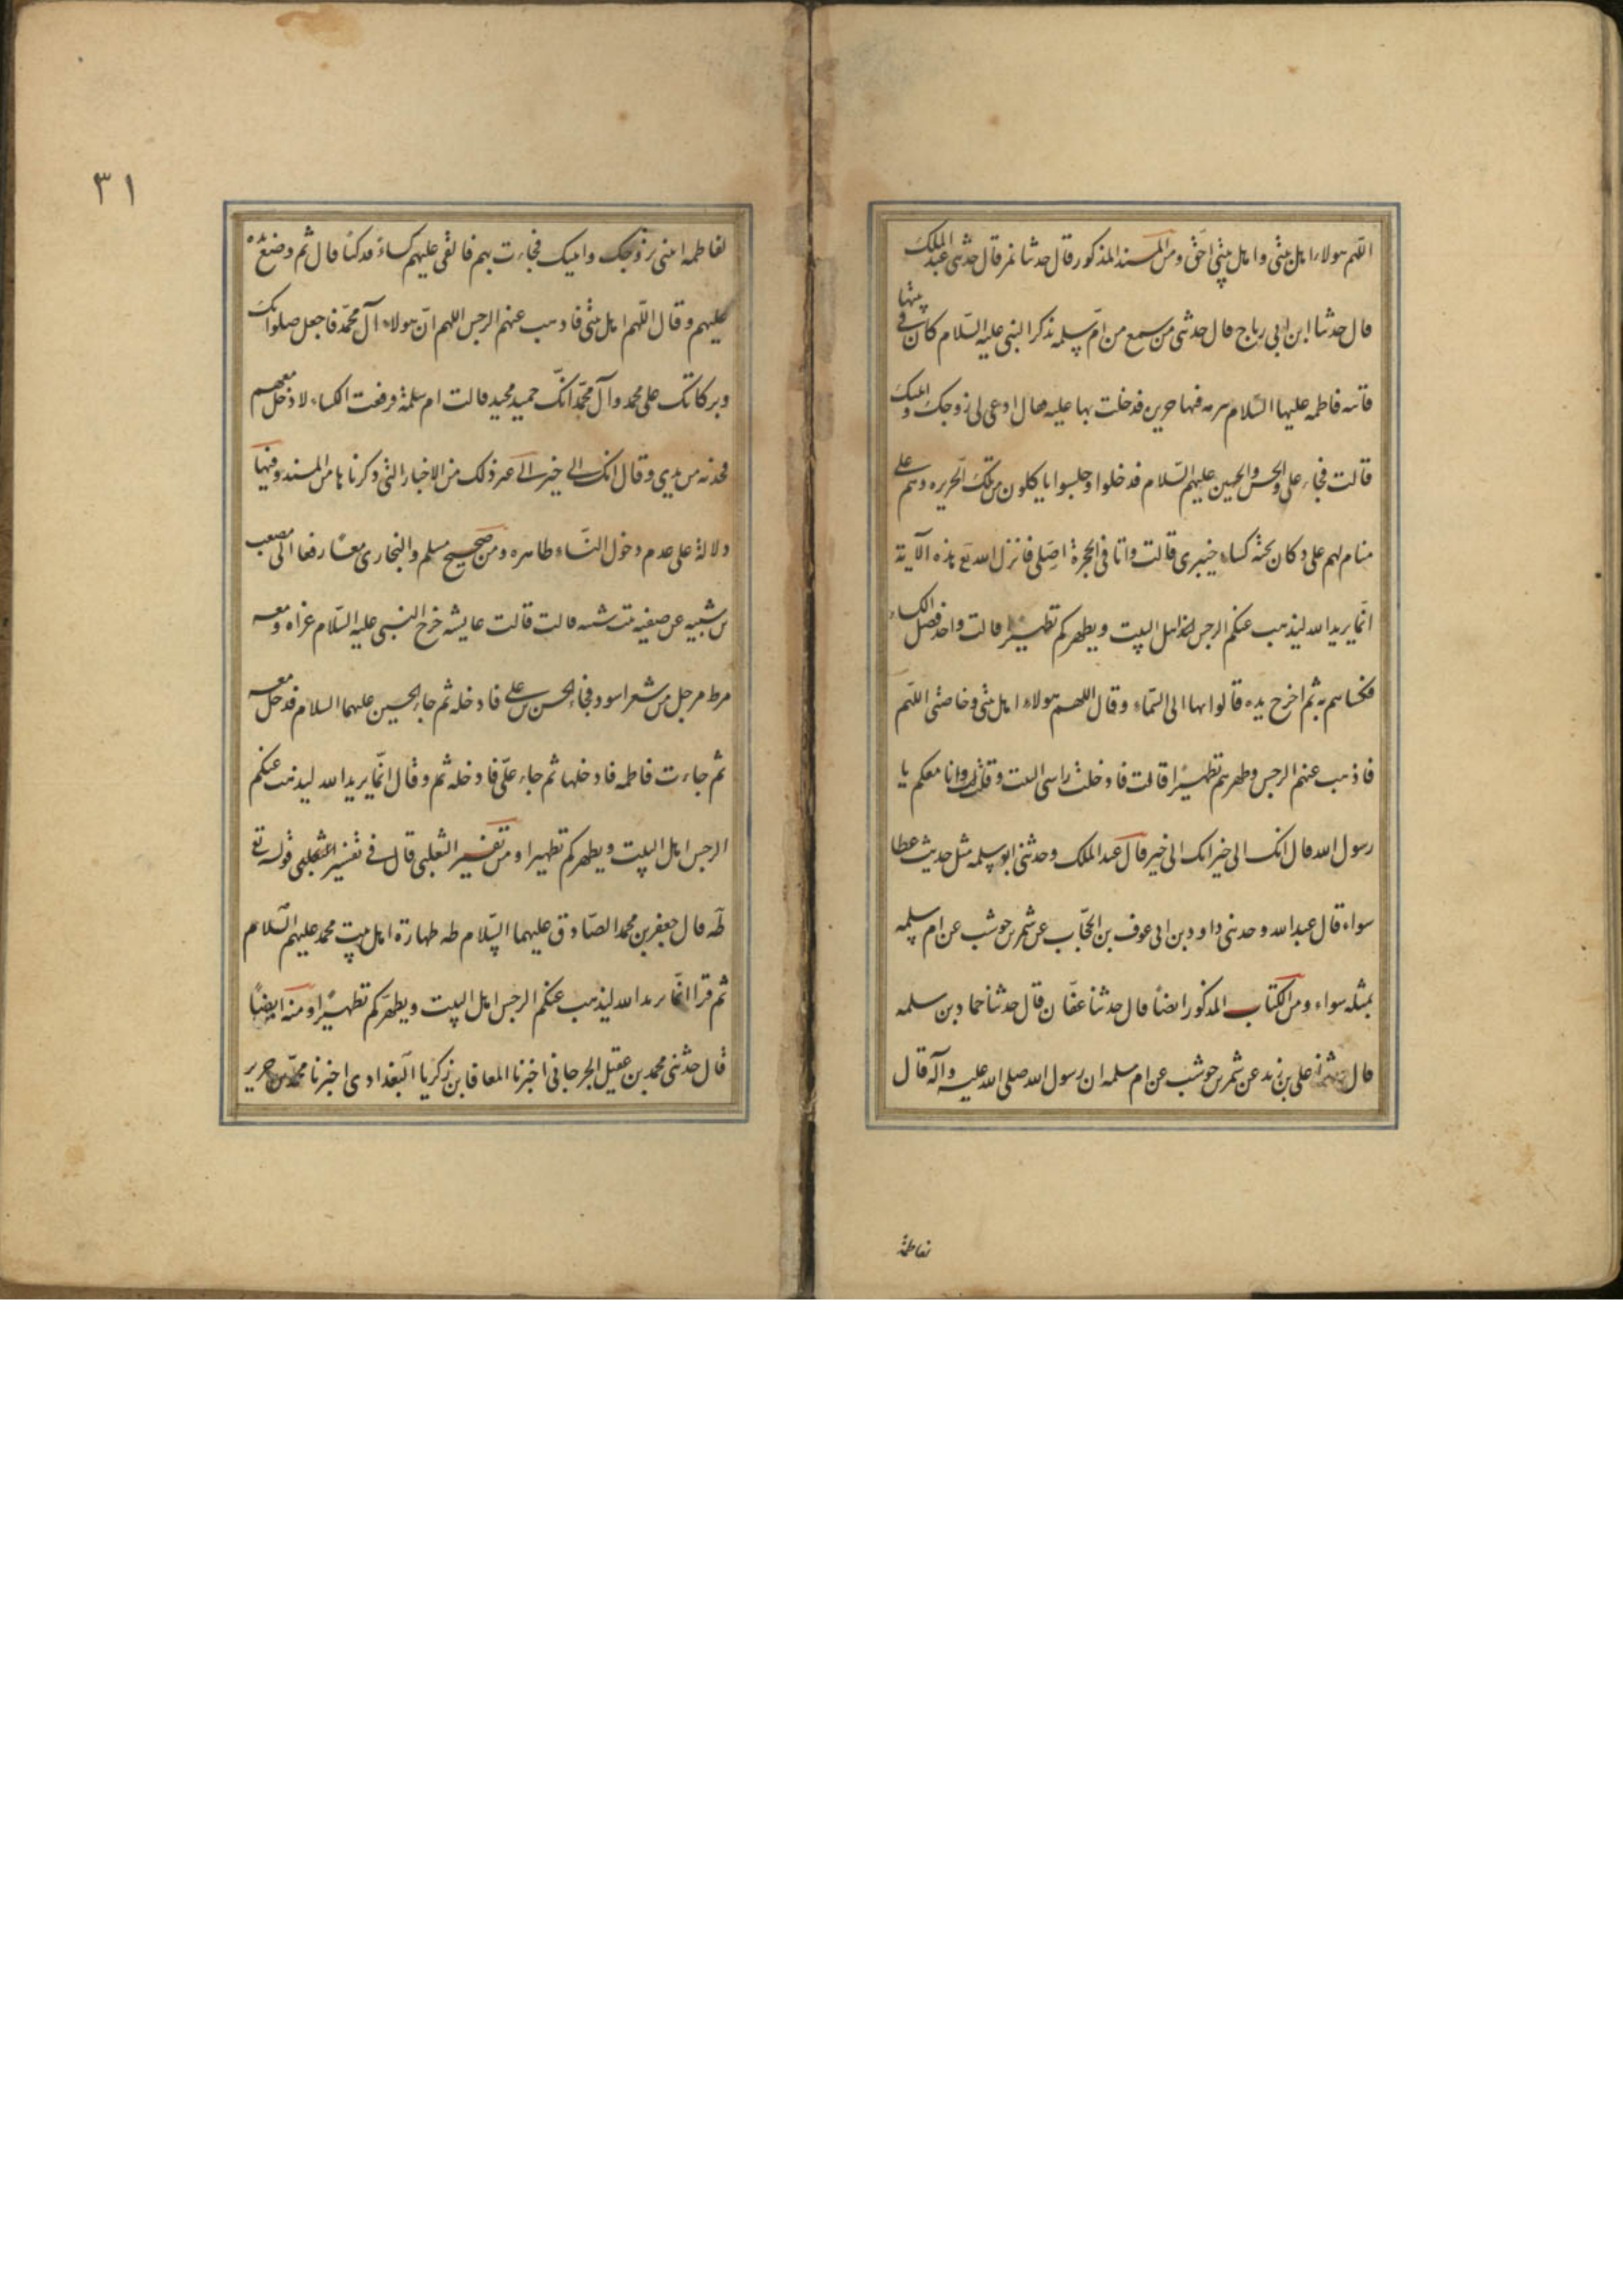 اللهم هولاء اهل بيتى واهل بيتى احق ومن المسند المذكور قال حدثنا نمر قال حدثنى عبد الملك
قال حدثنا ابن ابى رباح قال حدثنى من سمع من ام سلمه تذكر النبى عليه السّلام كان فى بيتها
فاتته فاطمه عليها السّلام ببرمه فيها حريره فدخلت بها عليه فقال ادعى لى زوجك وابنيك
قالت فجاء على والحسن والحسين عليهم السّلام فدخلوا وجلسوا ياكلون من تلك الحريره وهم على
منام لهم على دكان تحته كساء خيبرى قالت وانا فى الحجرة اصلى فانزل الله تع هذه الآية
انّما يريد الله ليذهب عنكم الرجس اهل البيت ويطهركم تطهيرًا قالت واخذ فضل الكساء
فكساهم به ثم اخرج يده فالوا بها الى السّماء وقال اللهم هولاء اهل بيتى وخاصتى اللهم
فاذهب عنهم الرجس وطهرهم تطهيرًا قالت فادخلت راسى البيت وقلت وانا معكم يا
رسول الله قال انك الى خير انك الى خير قال عبد الملك وحدثنى ابو سلمه مثل حديث عطا
سواء قال عبد الله وحدثنى داود بن ابى عوف بن الحجّاب عن شهر بن حوشب عن ام سلمه
بمثله سواء ومن الكتاب المذكور ايضًا قال حدثنا عفّان قال حدثنا حماد بن سلمه
قال حدثنا على بن زيد عن شهر بن حوشب عن ام سلمه ان رسول الله صلى الله عليه وآله قال
لفاطمة
٣١
لفاطمه ايتنى بزوجك وابنيك فجاءت بهم فالقى عليهم كساءً فدكيًا قال ثم وضع يده
عليهم وقال اللّهم اهل بيتى فاذهب عنهم الرجس اللهم انّ هولاء آل محمّد فاجعل صلواتك
وبركاتك على محمد وآل محمّد انّك حميد مجيد قالت ام سلمة فرفعت الكساء لادخل معهم
فجذبه من يدى وقال انك الى خير الى غير ذلك من الاخبار التى ذكرناها من المسند وفيها
دلالة على عدم دخول النسّاء ظاهره ومن صحيح مسلم والبخارى معًا رفعا الى مصعب
بن شيبه عن صفيه بنت شيبه قالت قالت عايشه خرج النبى عليه السّلام غداه ومعه
مرط مرجل من شعر اسود فجاء الحسن بن على فادخله ثم جاء الحسين عليهما السلام فدخل معه
ثم جاءت فاطمه فادخلها ثم جاء علىّ فادخله ثم وقال انّما يريد الله ليذهب عنكم
الرجس اهل البيت ويطهركم تطهيرا ومن تفسير الثعلبى قال فى تفسير الثعلبى قوله تع
طه قال جعفر بن محمد الصّادق عليهما السّلام طه طهارة اهل بيت محمد عليهم السّلام
ثم قرا انّما يريد الله ليذهب عنكم الرجس اهل البيت ويطهّركم تطهيرًا ومنه ايضًا
قال حدثنى محمد بن عقيل الجرجانى اخبرنا المعافا بن زكريا البغدادى اخبرنا محمّد بن جرير